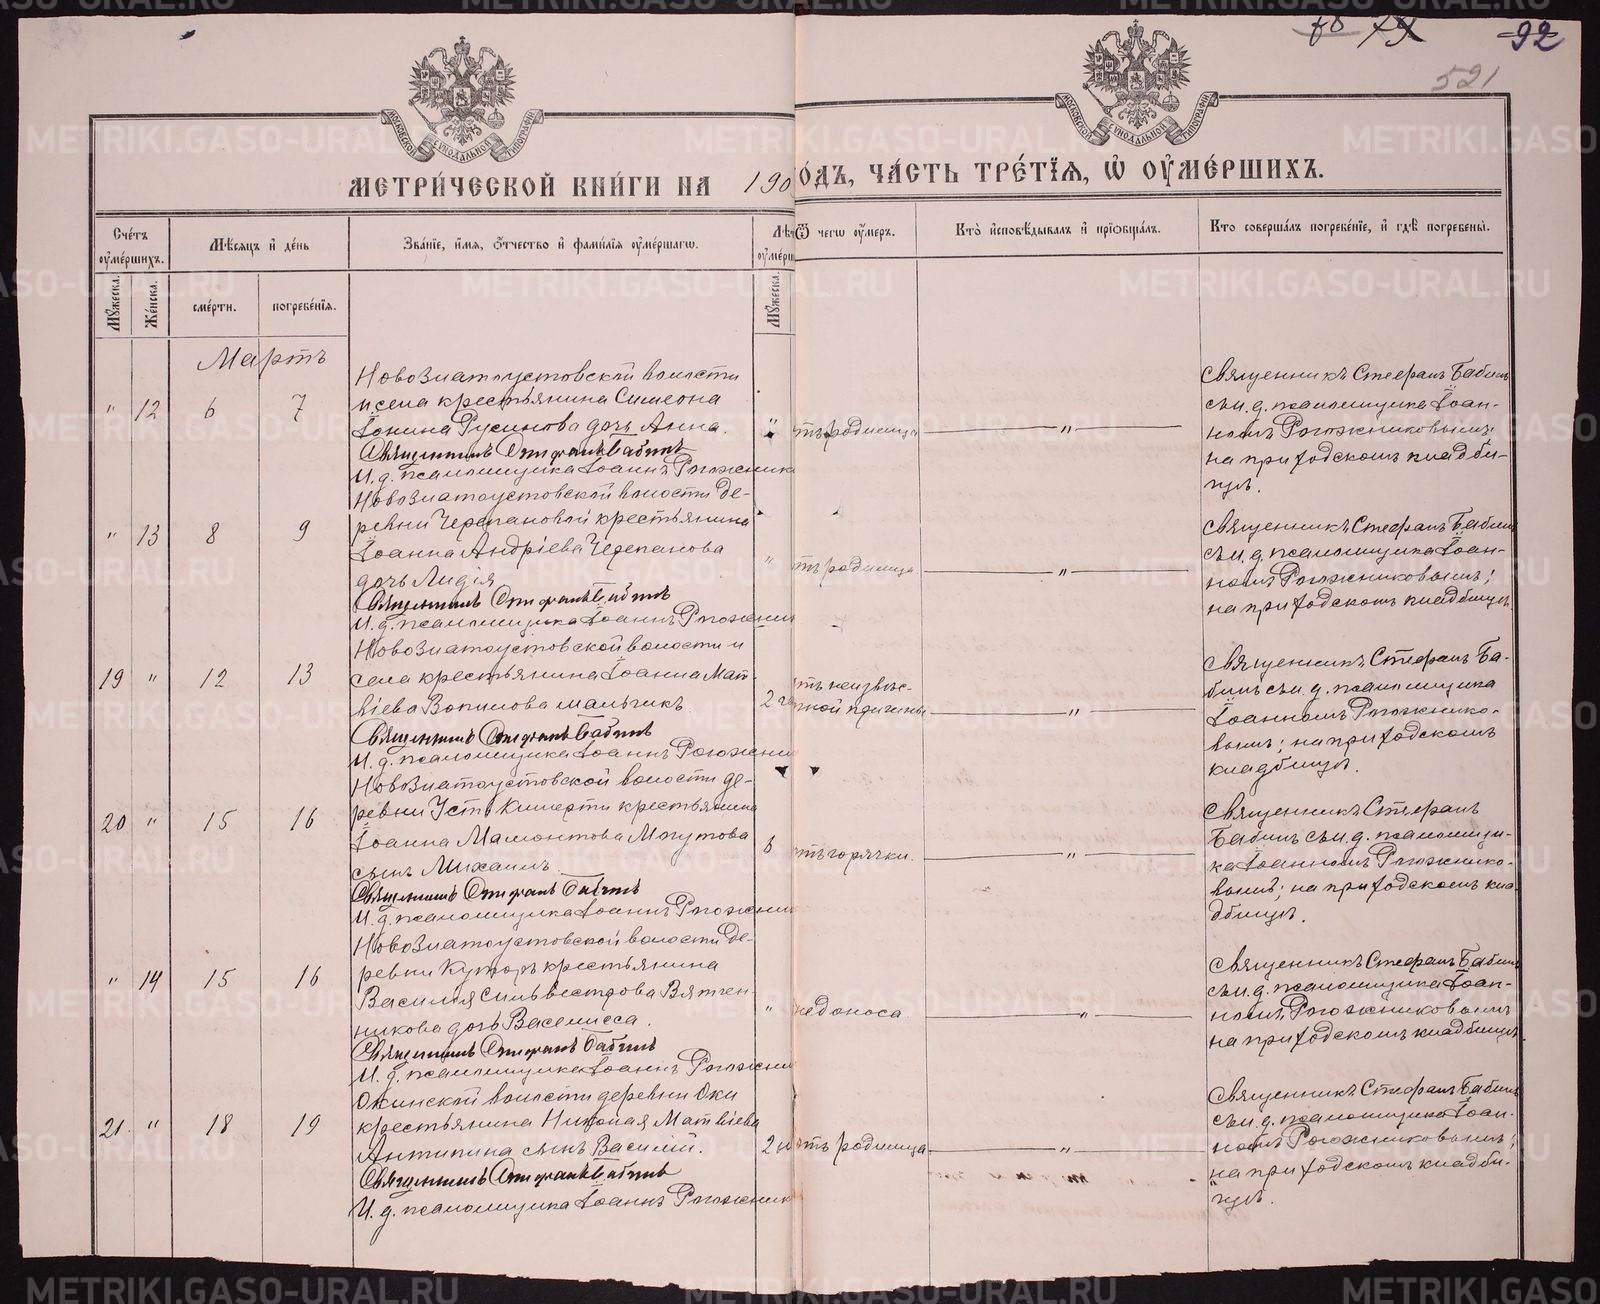 92
521
МОСКОВСКОЙ СѴНОДАЛЬНОЙ ТИПОГРАФІИ
МОСКОВСКОЙ СѴНОДАЛЬНОЙ ТИПОГРАФІИ
МЕТРИ́ЧЕСКОЙ КНИ́ГИ НА 190
ОДЪ, ЧА́СТЬ ТРЕ́ТЇѦ, Ѽ ОУ҆МЕ́РШИХЪ.
Сче́тъ оу҆ме́ршихъ.
Мѣ́сѧцъ и҆ де́нь
Зва́нїе, и҆́мѧ, ѻ҆́тчество и҆ фами́лїѧ оу҆ме́ршагѡ.
Ѿ чегѡ̀ оу҆́меръ.
Кто̀ и҆сповѣ́дывалъ и҆ прїѡбща́лъ.
Кто̀ соверша́лъ погребе́нїе, и҆ гдѣ̀ погребены̀.
Мꙋ́жеска.
Же́нска.
сме́рти.
погребе́нїѧ.
Мꙋ́жеска.
Мартъ
" 12 6 7
Новозлатоустовской волости
и села крестьянина Симеона
Іонина Русинова дочь Анна.
Священникъ Стефанъ Бабинъ
И. д. псаломщика Іоаннъ Рогожник
"
тъ родимца
"
Священникъ Стефанъ Бабинъ
съ и. д. псаломщика Іоан-
номъ Рогожниковымъ;
на приходскомъ кладби-
щѣ.
" 13 8 9
Новозлатоустовской волости де-
ревни Черепановой крестьянина
Іоанна Андріева Черепанова
дочь Лидія
Священникъ Стефанъ Бабинъ
И. д. псаломщика Іоаннъ Рогожни
"
тъ родимца
"
Священникъ Стефанъ Бабинъ
съ и. д. псаломщика Іоан-
номъ Рогожниковымъ;
на приходскомъ кладбищѣ
19 " 12 13
Новозлатоустовской волости и
села крестьянина Іоанна Мат-
вѣева Вопилова мальчикъ
Священникъ Стефанъ Бабинъ
И. д. псаломщика Іоаннъ Рогожни
2 ча
тъ неизвѣс-
ной причины
"
Священникъ Стефанъ Ба-
бинъ съ и. д. псаломщика
Іоанномъ Рогожнико-
вымъ; на приходскомъ
кладбищѣ.
20 " 15 16
Новозлатоустовской волости де-
ревни Усть Кишерти крестьянина
Іоанна Мамонтова Могутова
сынъ Михаилъ
Священникъ Стефанъ Бабинъ
И. д. псаломщика Іоаннъ Рогожни
6
тъ горячки.
"
Священникъ Стефанъ
Бабинъ съ и. д. псаломщи-
ка Іоанномъ Рогожнико-
вымъ; на приходскомъ кла-
дбищѣ.
" 14 15 16
Новозлатоустовской волости де-
ревни Куторъ крестьянина
Василія Сильвестрова Вятчен-
никова дочь Василисса.
Священникъ Стефанъ Бабинъ
И. д. псаломщика Іоаннъ Рогожни
"
недоноса
"
Священникъ Стефанъ Бабинъ
съ и. д. псаломщика Іоан-
номъ Рогожниковымъ
на приходскомъ кладбищѣ
21. " 18 19
Окинской волости деревни Оки
крестьянина Николая Матвіева
Антипина сынъ Василій.
Священникъ Стефанъ Бабинъ
И. д. псаломщика Іоаннъ Рогожник
2 н
тъ родимца
"
Священникъ Стефанъ Бабинъ
съ и. д. псаломщика Іоан-
номъ Рогожниковымъ;
на приходскомъ кладби-
щѣ.
METRIKI.GASO-URAL.RU